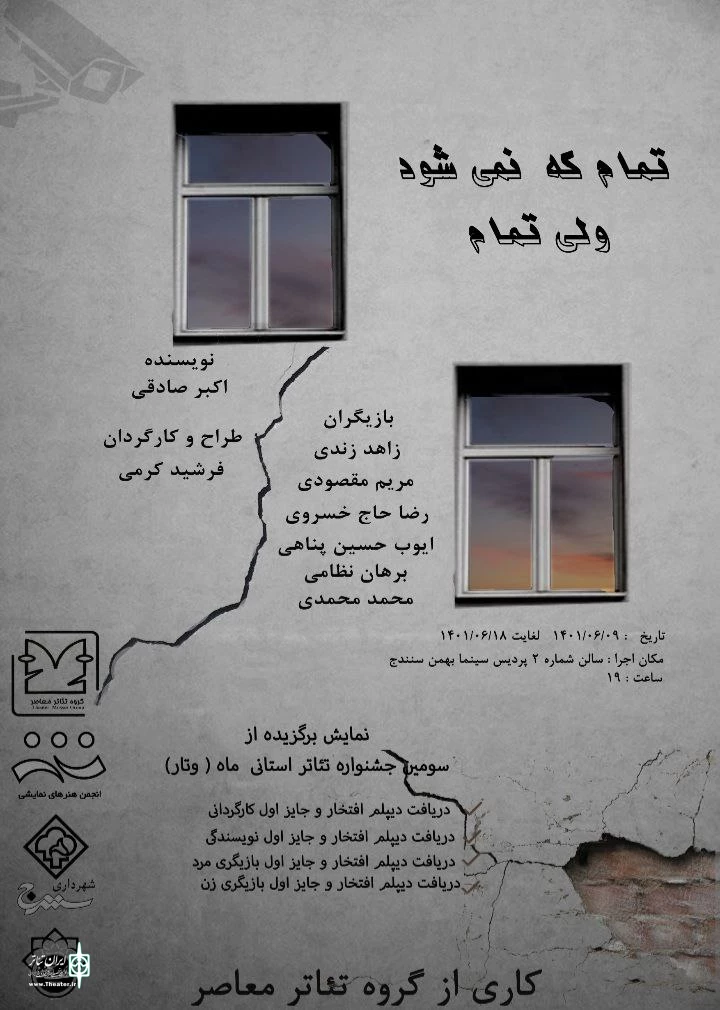 تمام که نمی شود
ولی تمام
نویسنده
اکبر صادقی
طراح و کارگردان
فرشید کرمی
بازیگران
زاهد زندی
مریم مقصودی
رضا حاج خسروی
ایوب حسین پناهی
برهان نظامی
محمد محمدی
تاریخ : ۱۴۰۱/۰۶/۰۹ لغایت ۱۴۰۱/۰۶/۱۸
مکان اجرا : سالن شماره ۲ پردیس سینما بهمن سنندج
ساعت : ۱۹
نمایش برگزیده از
سومین جشنواره تئاتر استانی ماه ( وتار)
دریافت دیپلم افتخار و جایز اول کارگردانی
دریافت دیپلم افتخار و جایز اول نویسندگی
دریافت دیپلم افتخار و جایز اول بازیگری مرد
دریافت دیپلم افتخار و جایز اول بازیگری زن
گروه تئاتر معاصر
انجمن هنرهای نمایشی
شهرداری
سنندج
ایران تئاتر
www.Theater.ir
کاری از گروه تئاتر معاصر